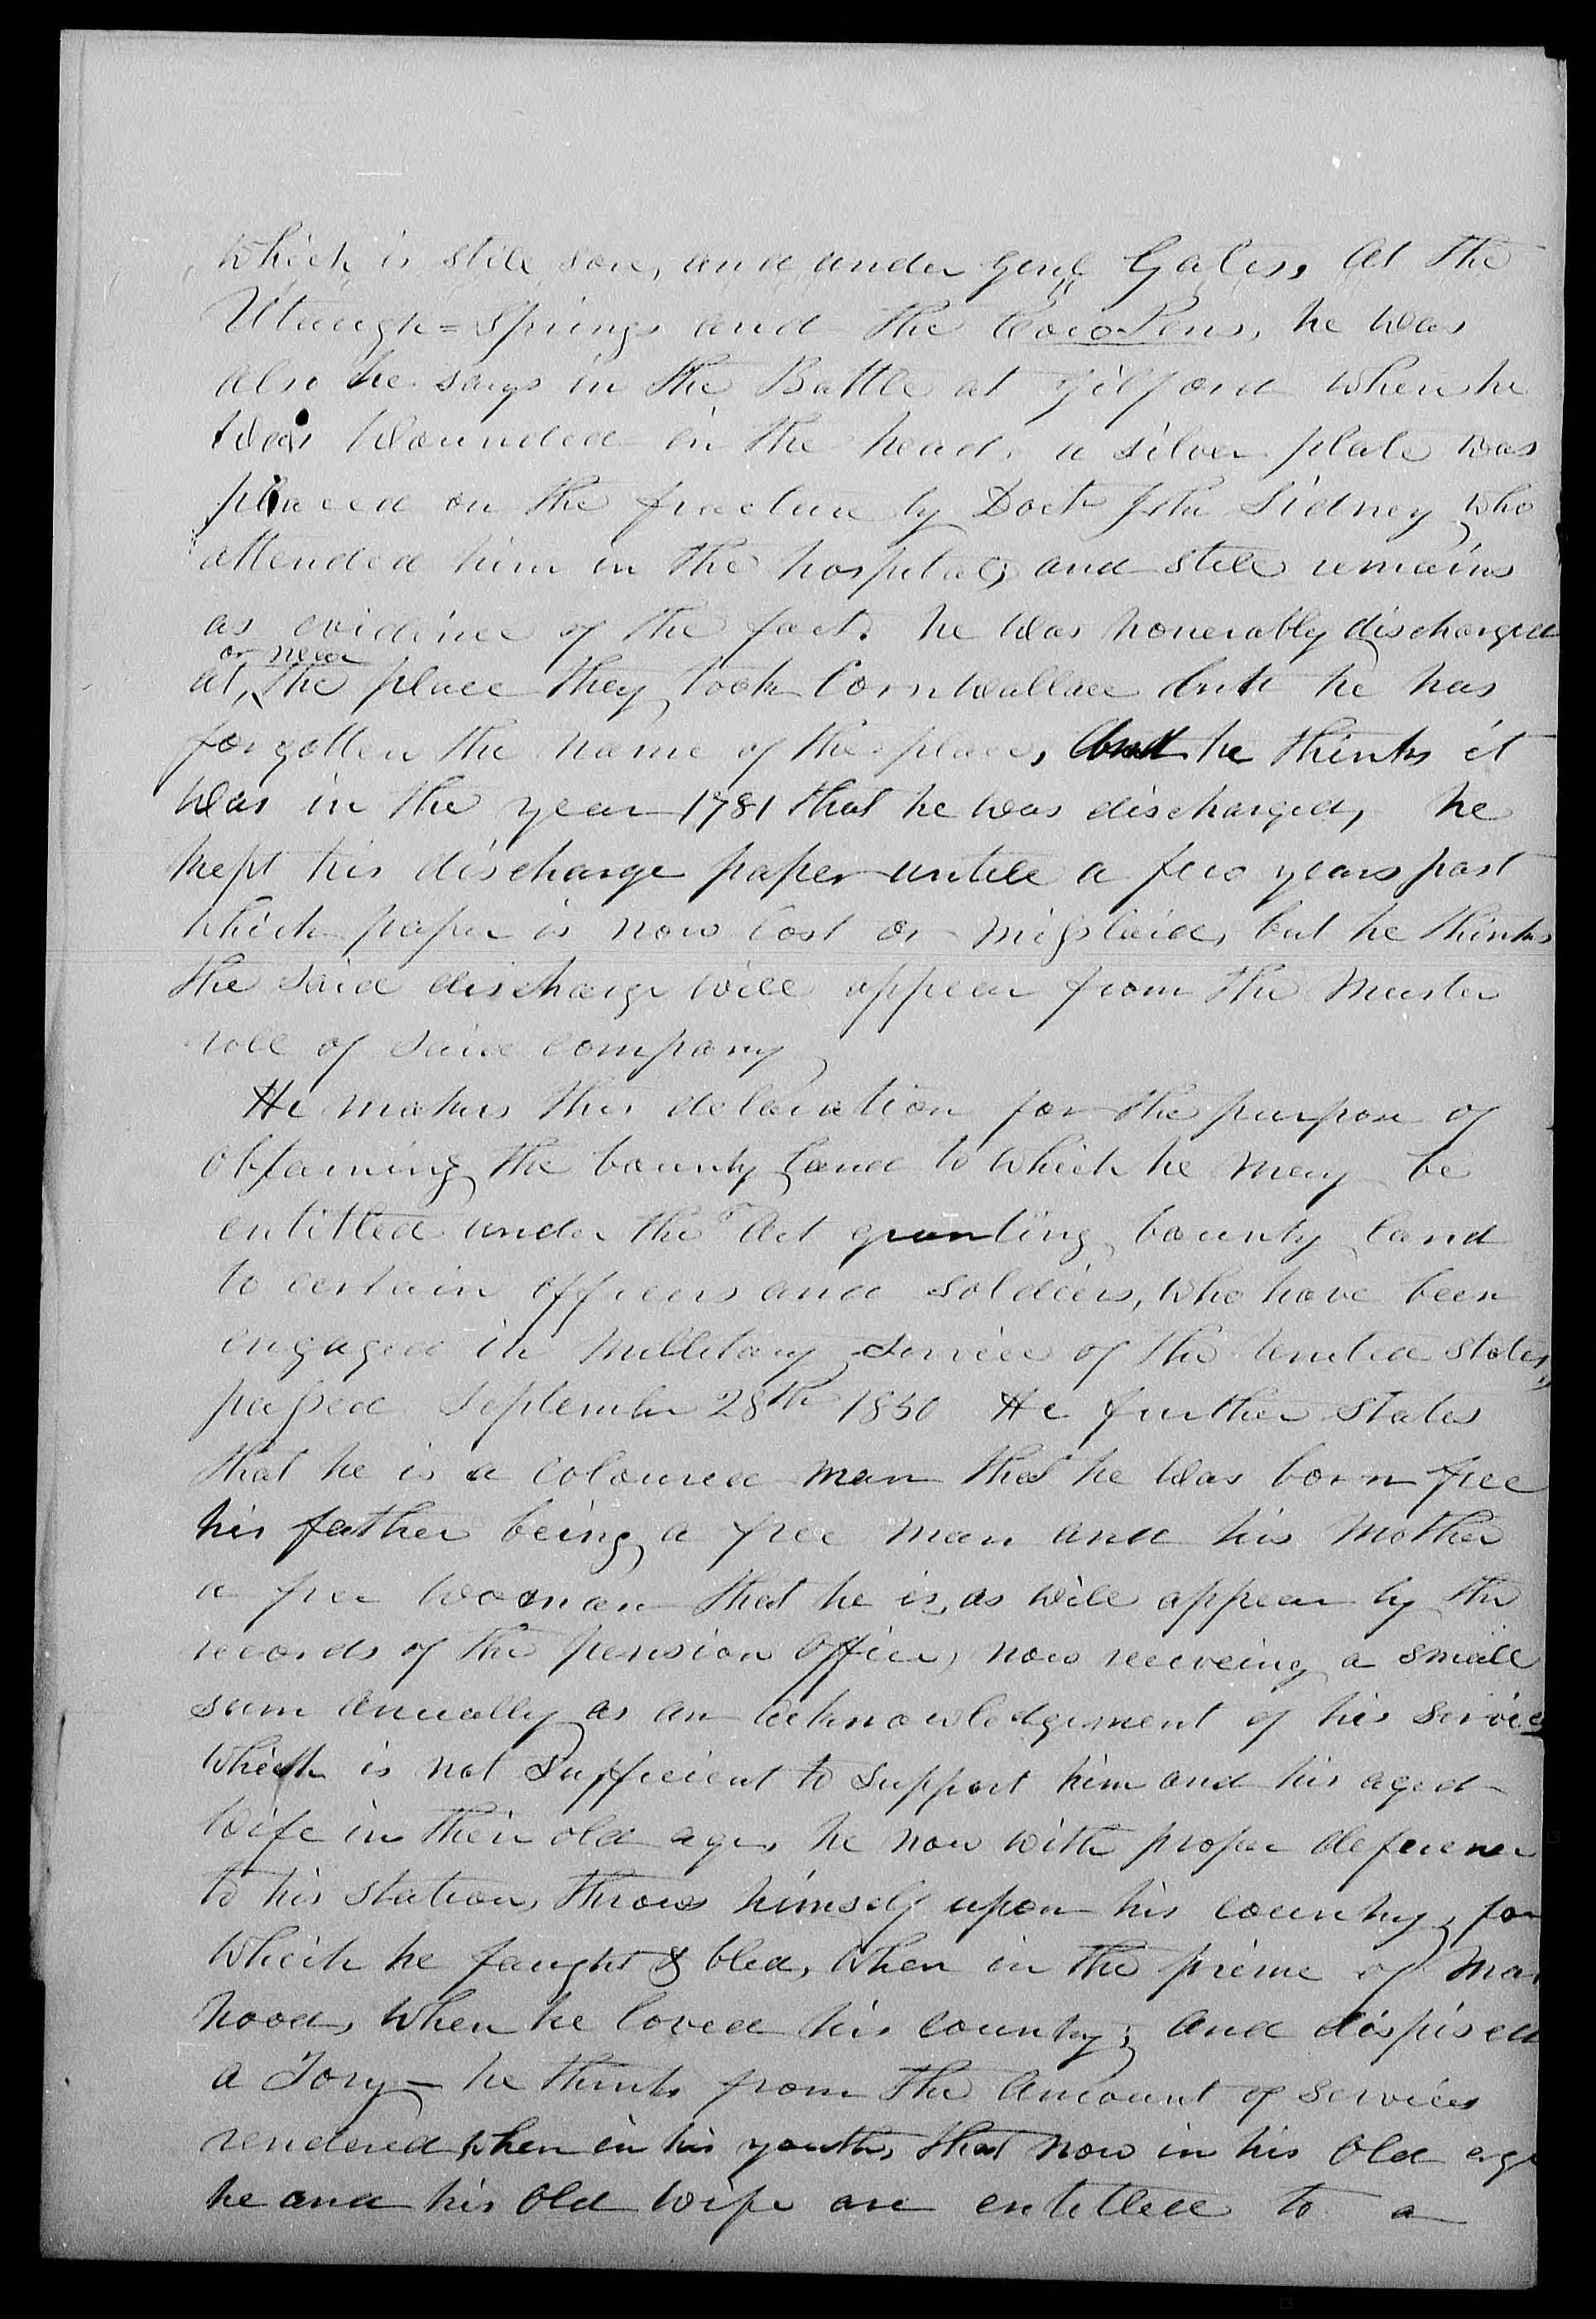 which is still sore, and under Genl Gates, At the
Utaugh=Springs and the CowPens, he was
also he says in the Battle at Gilford when he
was wounded in the head, a silver plate was
placed on the fracture by Doct John Sidney who
attended him in the hospital; and still remains
as evidence of the fact. he was honerably discharged
or near
at, the place they took Cornwallace but he has
forgotten the name of the place, but he thinks it
was in the year 1781 that he was discharged, he
kept his discharge paper untill a few years past
which paper is now lost or misslaid, but he thinks
the said discharge will appear from the Muster
roll of said company
He makes this delaration for the purpose of
obtaining the bounty land to which he may be
entitled under the Act granting bounty land
to certain officers and soldiers, who have been
engaged in millitary service of the United States,
passed September 28th 1850 He further states
that he is a coloured man that he was born free
his father being a free man and his Mother
a free woman that he is, as will appear by the
records of the pension office, now receiveing a small
sum anually as an acknowledgement of his service
which is not sufficient to support him and his aged
wife in their old age, he now with proper deference
to his station, throws himself upon his country, for
which he faught & bled, when in the prime of man
hood, when he loved his country; and dispised
a Tory - he thinks from the Amount of services
rendered when in his youth, that now in his old age
he and his old wife are entitled to a